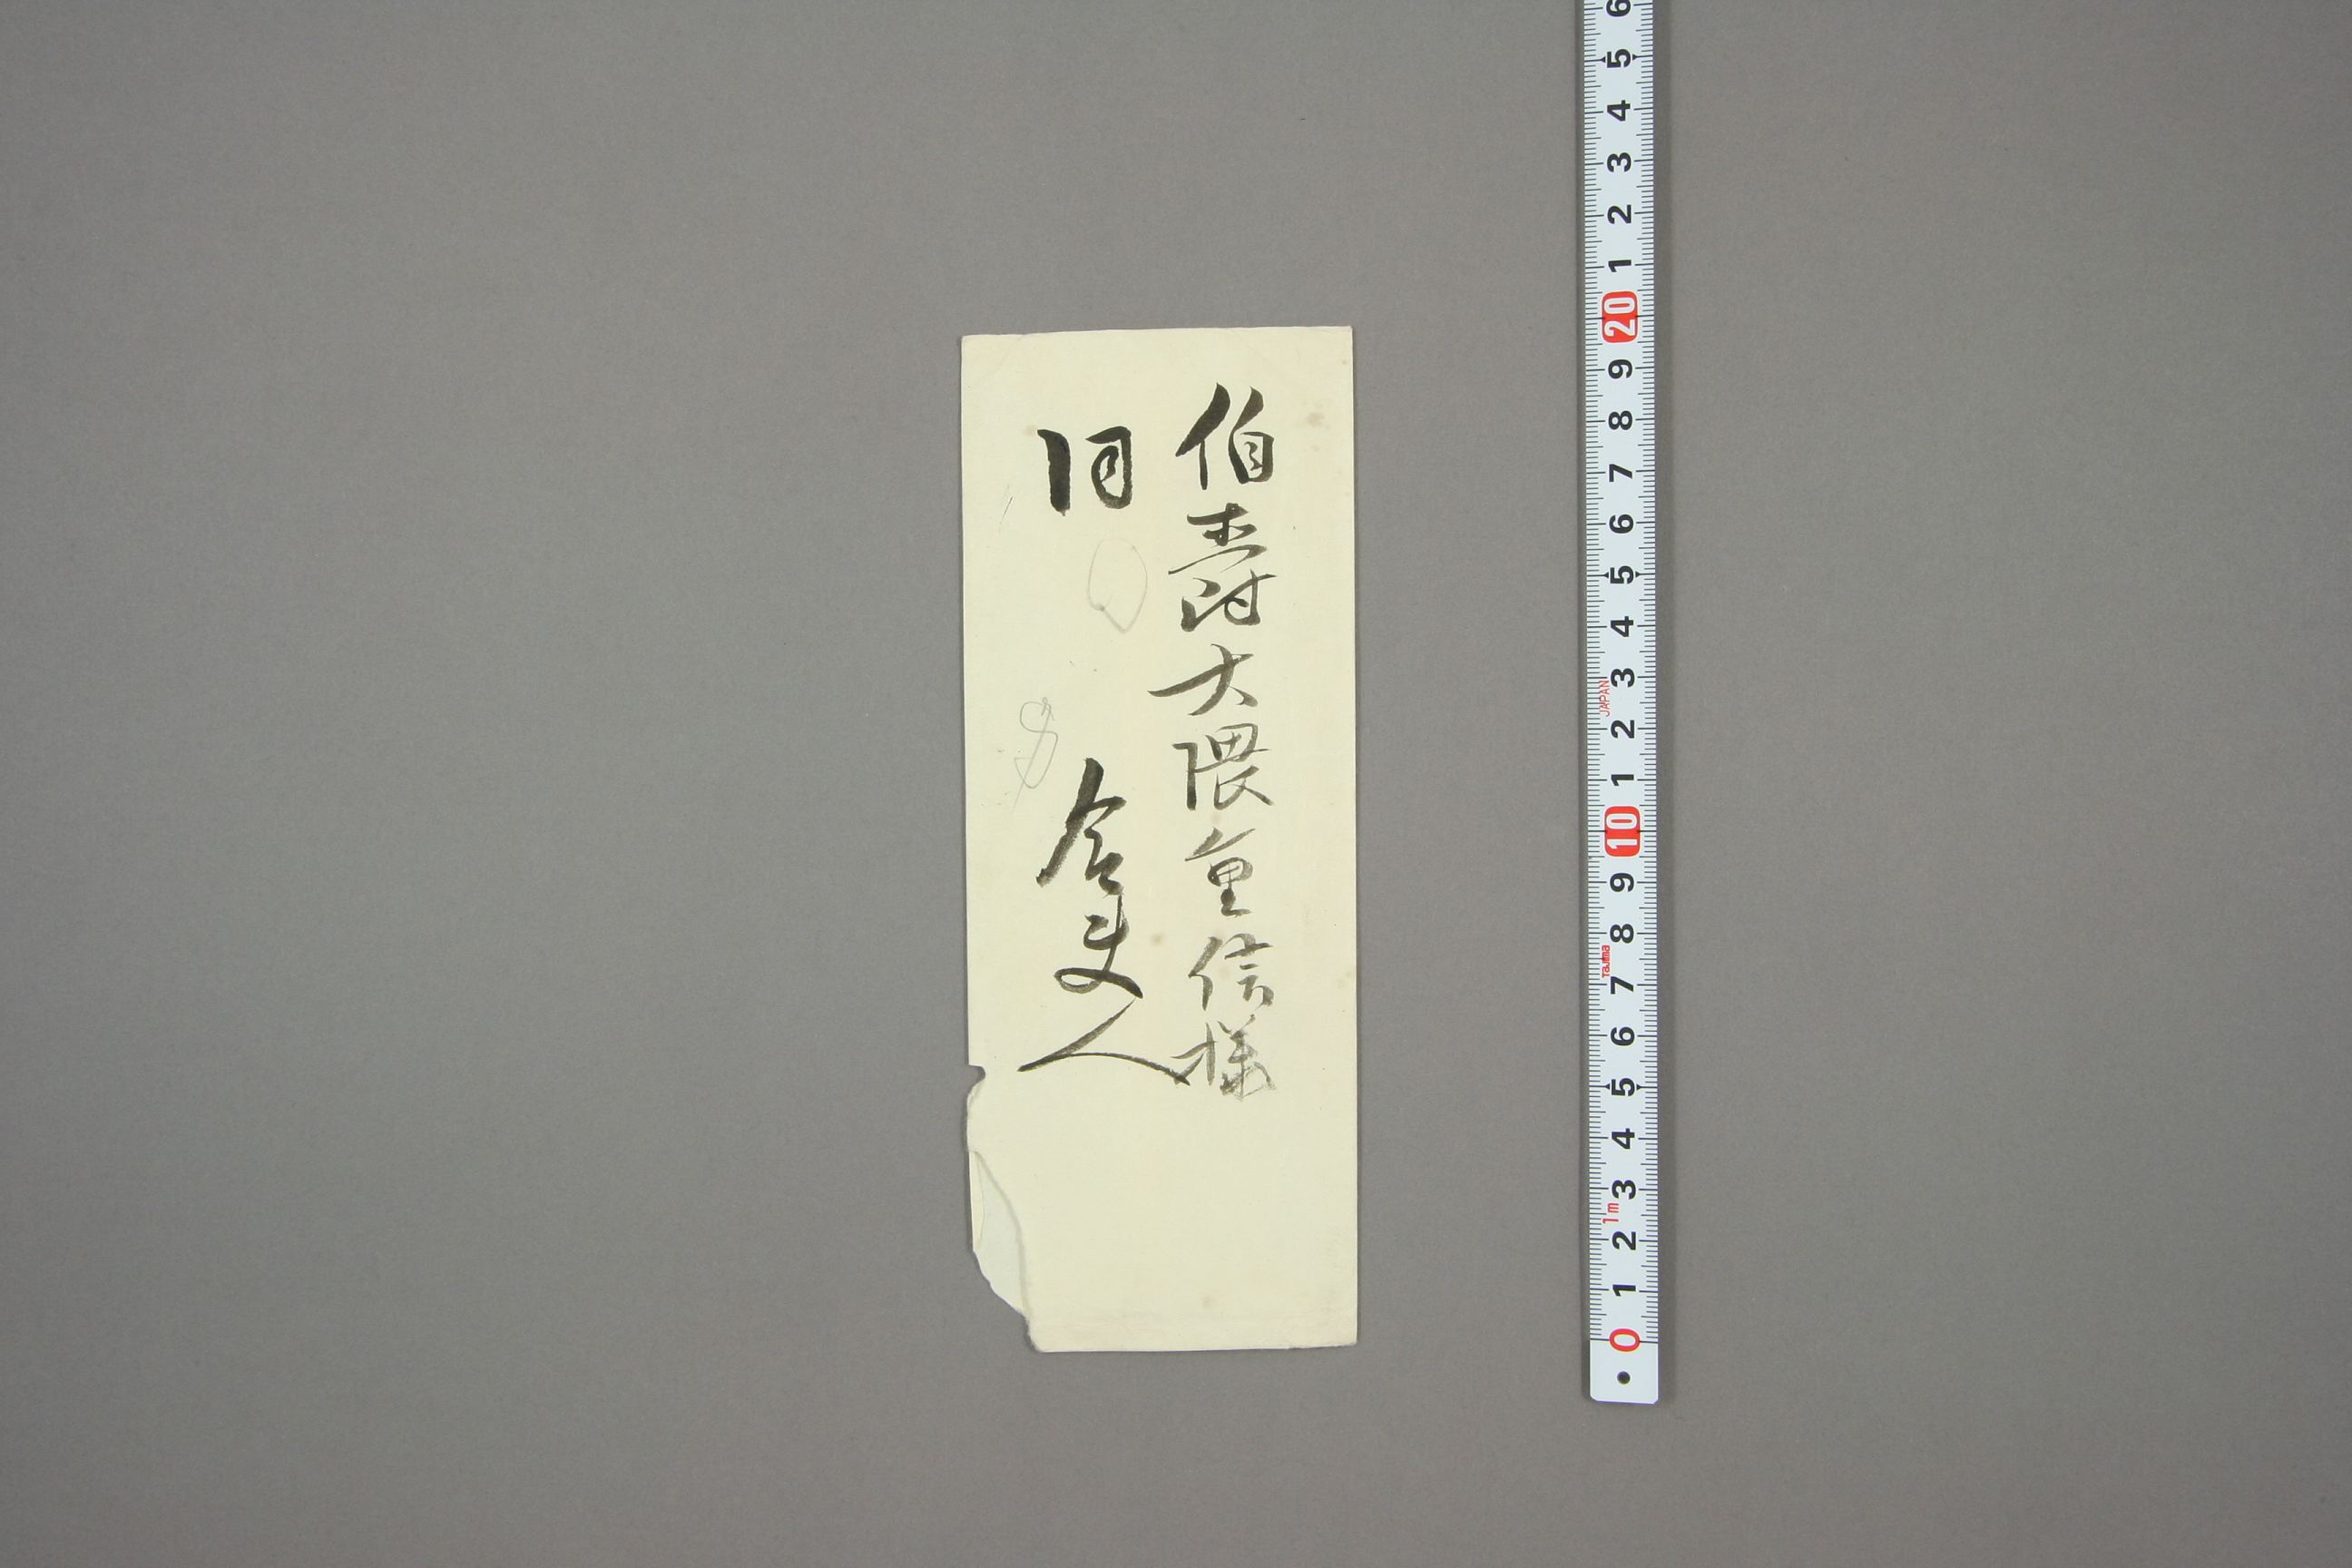 伯爵大隈重信様
同 令夫人
6
5
4
3
2
1
20
9
8
7
6
5
4
3
JAPAN
2
1
10
9
8
Tajima
7
6
5
4
3
1m
2
1
0